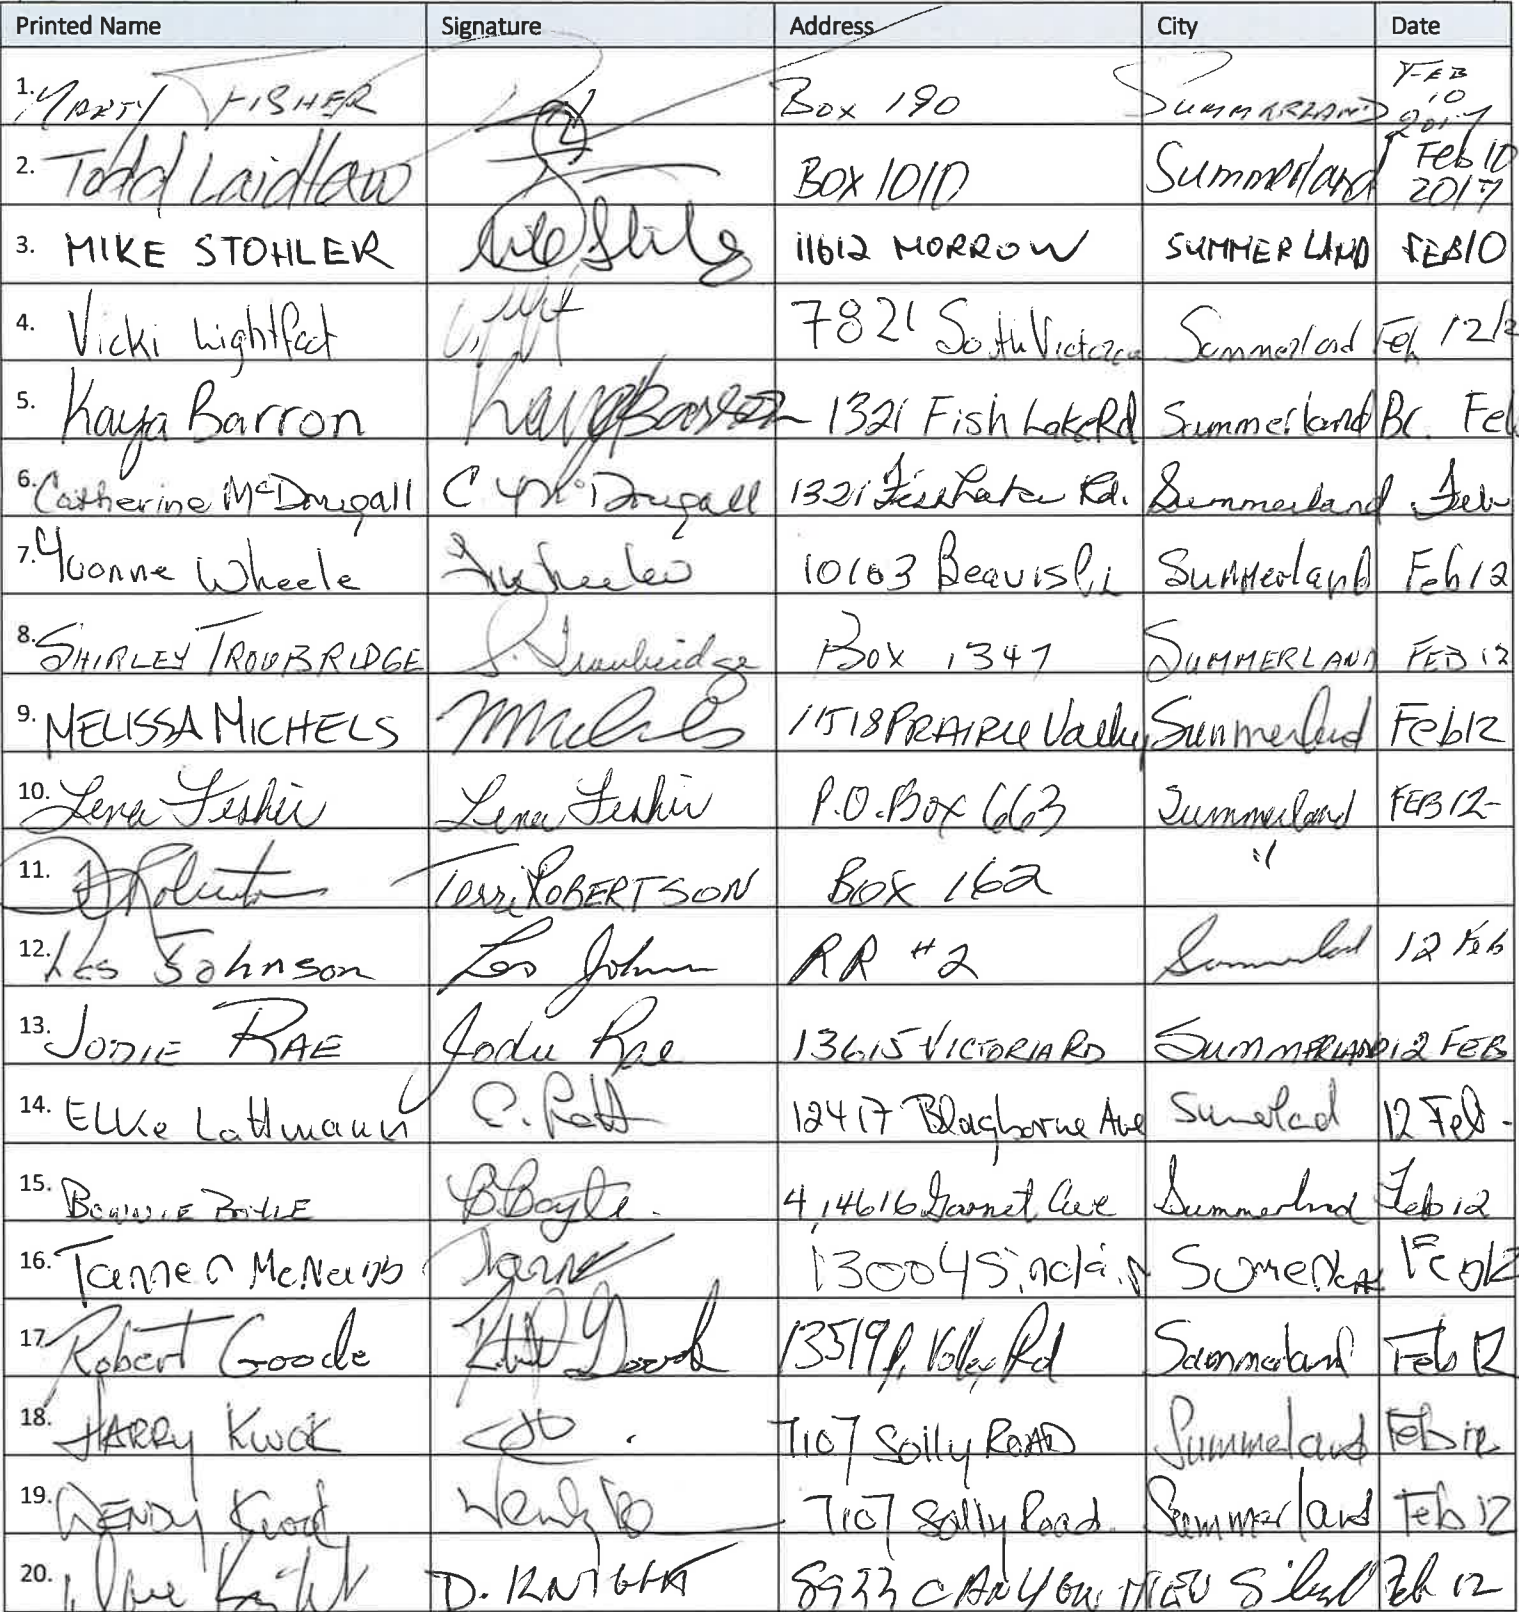 Printed Name Signature Address City Date
1. MARTY FISHER Box 190 SUMMERLAND FEB 10 2017
2. Todd Laidlaw BOX 1010 Summerland Feb 10 2017
3. MIKE STOHLER 11612 MORROW SUMMERLAND FEB 10
4. Vicki Lightfoot 7821 South Victoria Summerland Feb 12/2
5. Kaya Barron Kaya Barron 1321 Fish Lake Rd Summerland Bc. Feb
6. Catherine McDougall C McDougall 1321 Fish Lake Rd. Summerland Feb
7. Yvonne Wheele 10103 Beavis Pl Summerland Feb 12
8. SHIRLEY TROWBRIDGE S. Trowbridge Box 1347 SUMMERLAND FEB 12
9. MELISSA MICHELS 11518 PRAIRIE Valley Summerland Feb 12
10. Lena Fishir Lena Fishir P.O. Box 663 Summerland FEB 12
11. Terri ROBERTSON BOX 162 "
12. Les Johnson Les Johnson RR #2 Summerland 12 Feb
13. JODIE RAE Jodie Rae 13615 VICTORIA RD SUMMERLAND 12 FEB
14. Elke Lattmann 12417 Blagborne Ave Sumerlad 12 Feb -
15. BONNIE BOYLE B Boyle. 4, 14616 Garnet Ave Summerland Feb 12
16. Tanner McNabb 13004 Sinclair Feb 12
17. Robert Goode 13519 P. Valley Rd Summerland Feb 12
18. HARRY KWOK 7107 Solly ROAD Summerland Feb 12
19. WENDY Kwok 7107 Solly Road. Summerland Feb 12
20. D. KNIGHT 8933 CANYON VIEW Feb 12